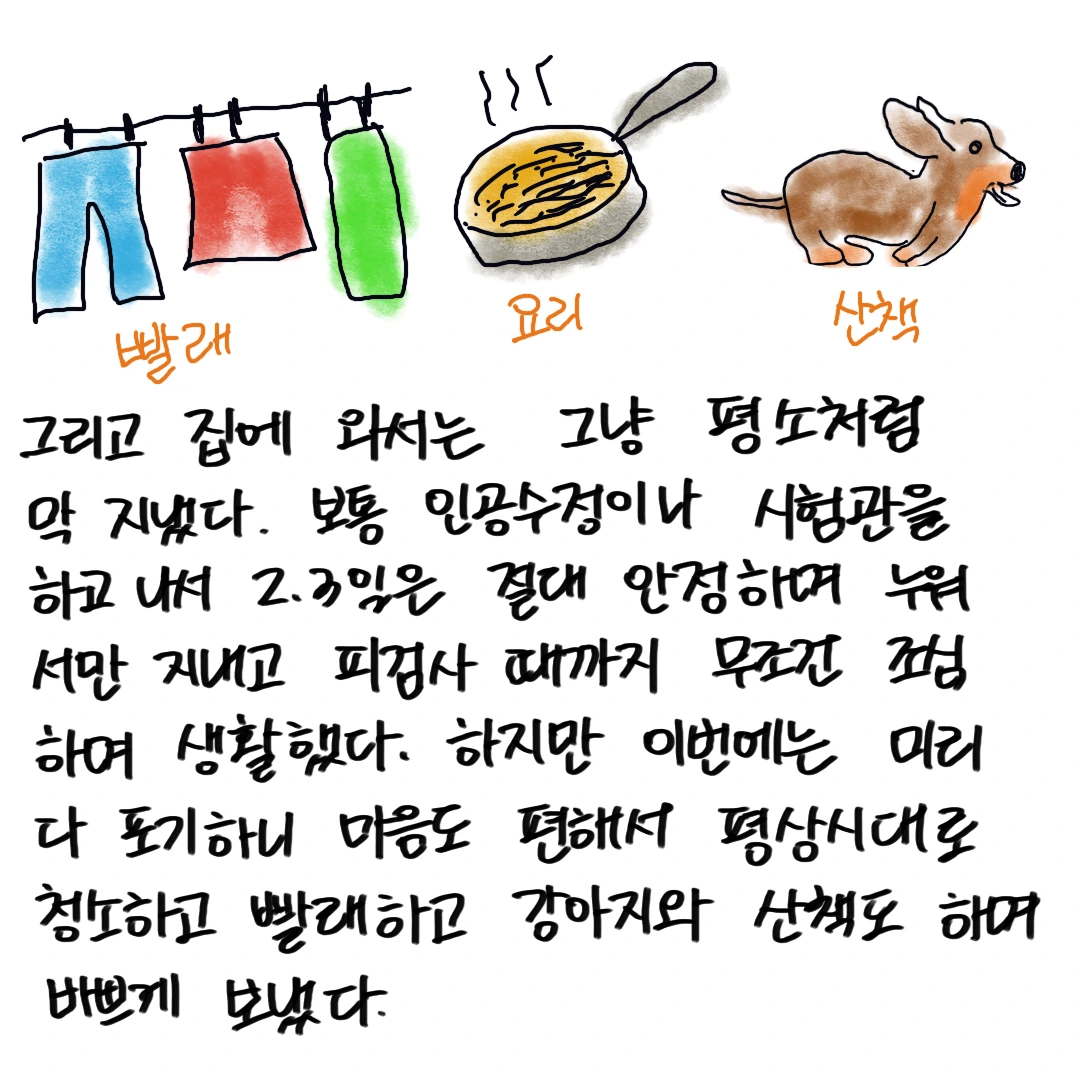 빨래
요리
산책
그리고 집에 와서는 그냥 평소처럼
막 지냈다. 보통 인공수정이나 시험관을
하고 나서 2.3일은 절대 안정하며 누워
서만 지내고 피검사 때까지 무조건 조심
하며 생활했다. 하지만 이번에는 미리
다 포기하니 마음도 편해서 평상시대로
청소하고 빨래하고 강아지와 산책도 하며
바쁘게 보냈다.